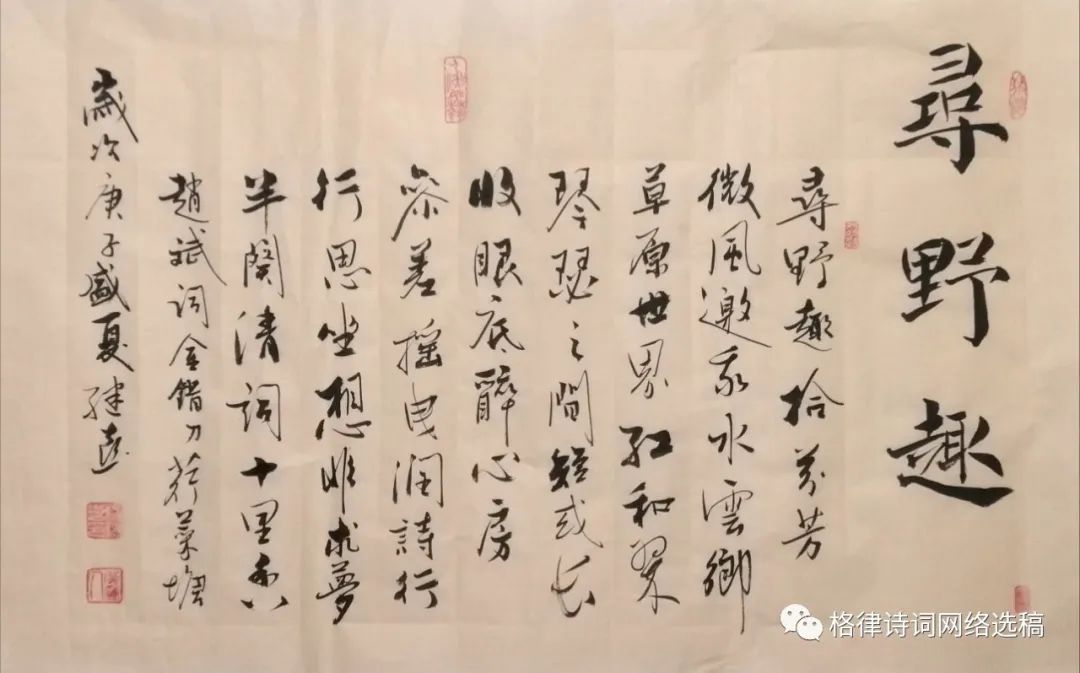 尋野趣
尋野趣拾芬芳
微風邀我水雲鄉
草原世界紅和翠
琴瑟之間短或長
收眼底醉心房
參差搖曳潤詩行
行思坐想唯求夢
半闋清詞十里香
趙斌詞金錯刀荷葉塘
歲次庚子盛夏繼遠
格律诗词网络选稿